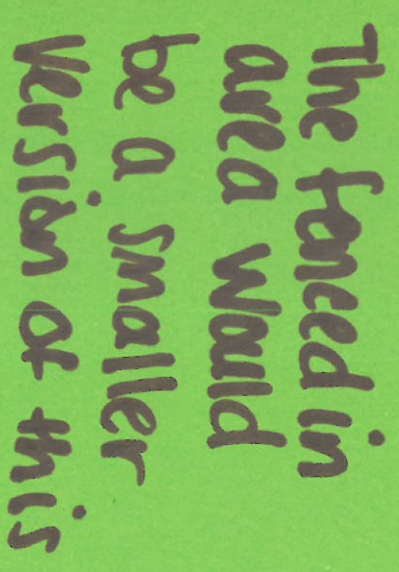 The fanced in
area would
be a smaller
version of this